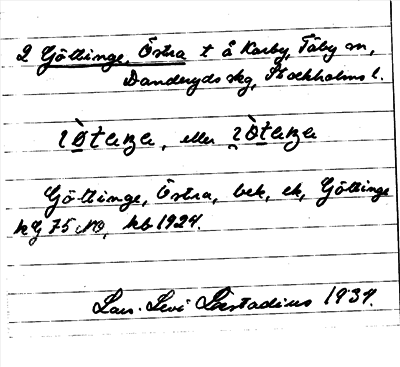 2 Göttinge, Östra t å Karby, Täby sn,
Danderyds skg, Stockholms l.
eller
Göttinge, Östra, bek, ek, Göttinge
hg 75 NO, kb 1924.
Lars-Levi Læstadius 1934.